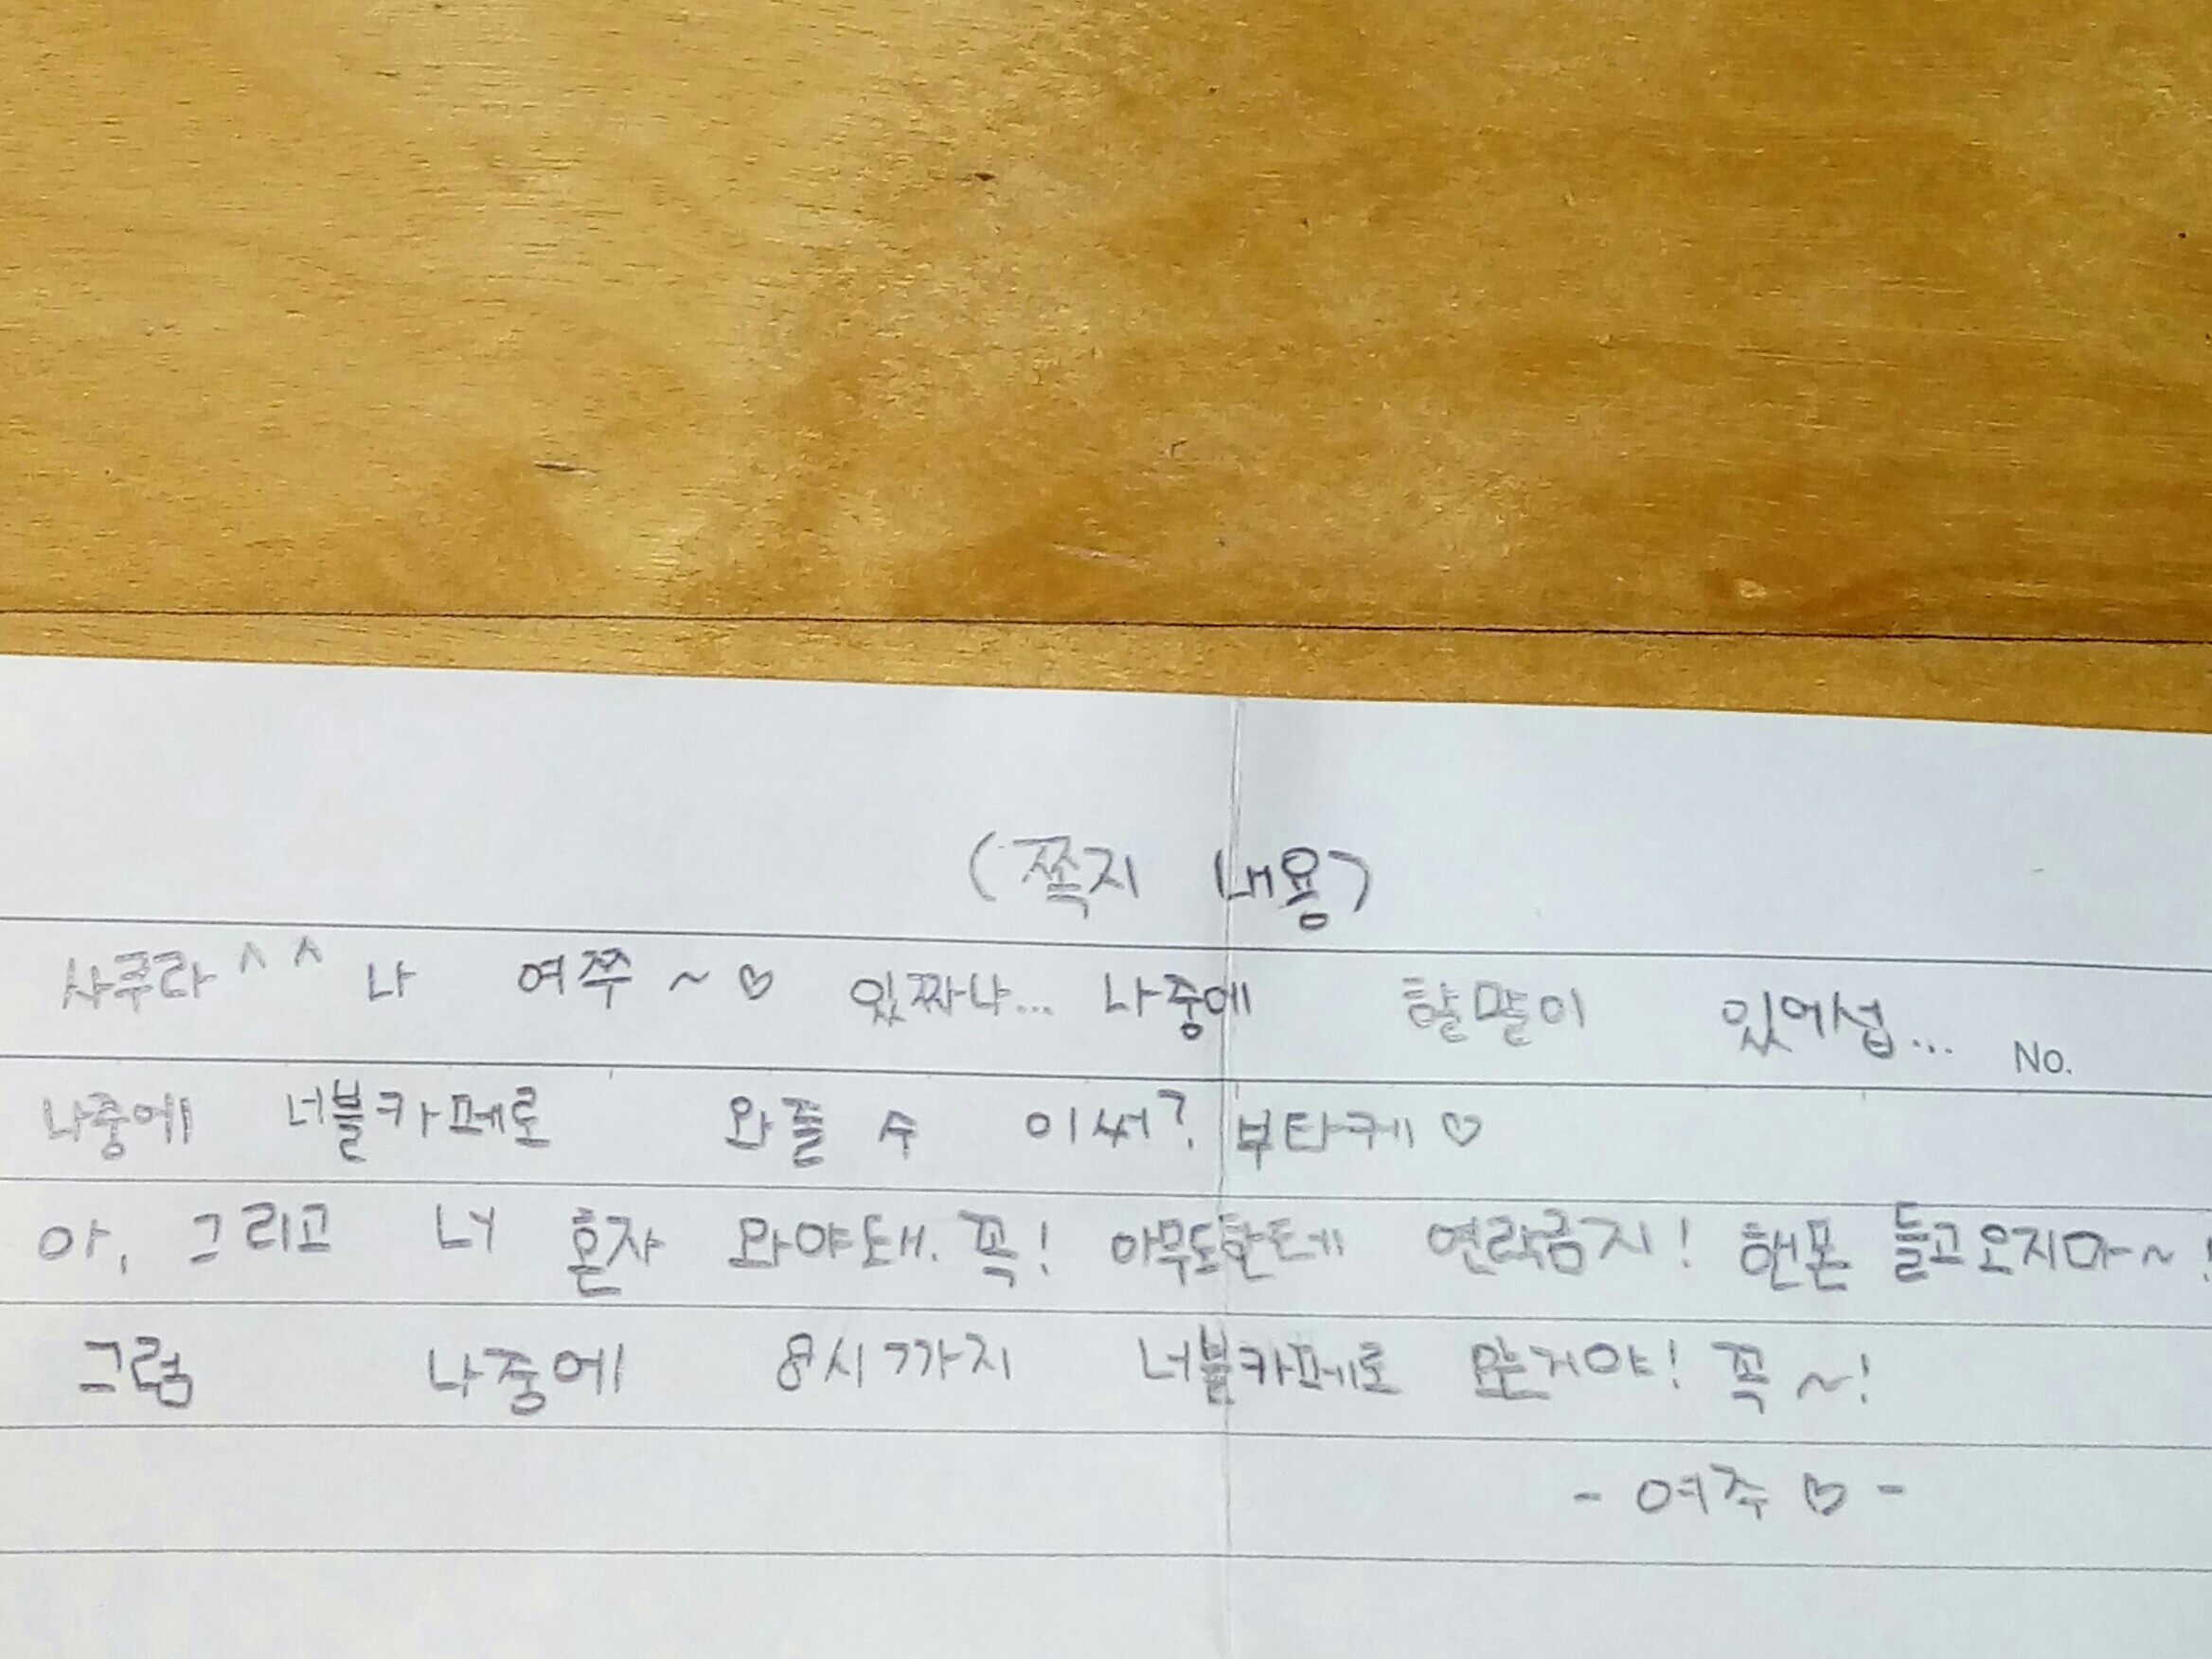 (쪽지 내용)
사쿠라^^ 나 여쭈~♡ 있짜나... 나중에 할말이 있어섭...
No.
나중에 너블카페로 와줄 수 이써? 부타케♡
아, 그리고 너 혼자 와야돼. 꼭! 아무도한테 연락금지! 핸폰 들고오지마~!
그럼 나중에 8시까지 너블카페로 오는거야! 꼭~!
- 여주♡ -